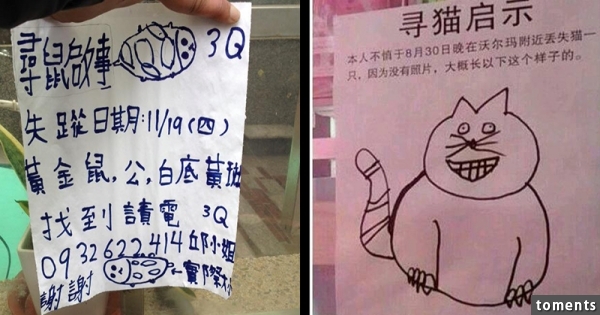 尋鼠啟事 3Q
失蹤日期:11/19(四)
黃金鼠,公,白底黃斑
找到請電 3Q
0932622414邱小姐
謝謝 ←實際大小
寻猫启示
本人不慎于8月30日晚在沃尔玛附近丢失猫一
只,因为没有照片,大概长以下这个样子的。
toments